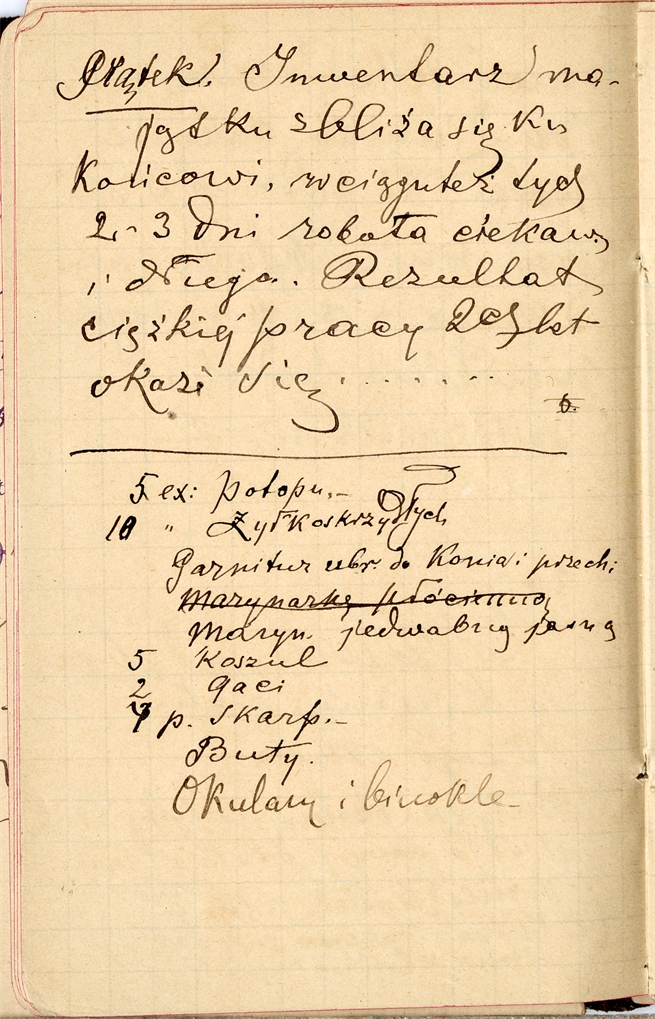 Piątek. Inwentarz ma-
jątku zbliża się ku
końcowi, wciągu też tych
2-3 dni robota ciekawa
i długa. Rezultat
ciężkiej pracy 2ch lat
okaże się........
5 ex: Potopu.-
10 " Żółtoskrzydłych
Garnitur ubr. do Konia i przech;
Marynarkę płócienną
Maryn. jedwabną jasną
5 Koszul
2 Gaci
4 p. Skarp.-
Buty.
Okulary i binokle-